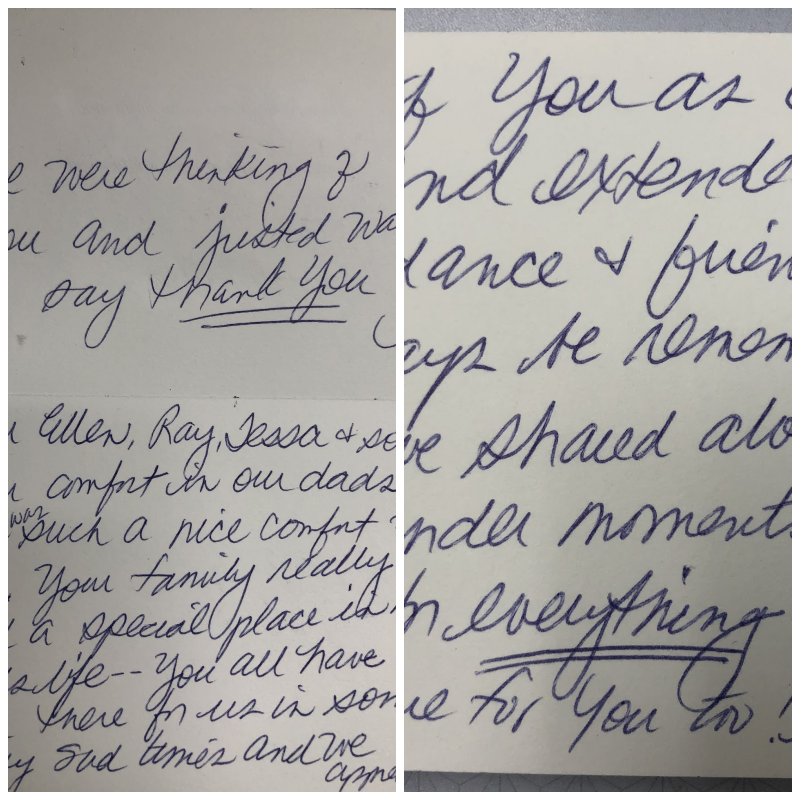 e were thinking of
ou and justed wa
say thank You
u Ellen, Ray, Tessa & so
u comfort in our dads
was
such a nice comfort
Your family really
a special place in
s life -- You all have
there for us in som
y sad times and we
appre
of You as
nd extende
dance & frien
ays be remem
ve shared alo
nder moments
everything
ue for You too!